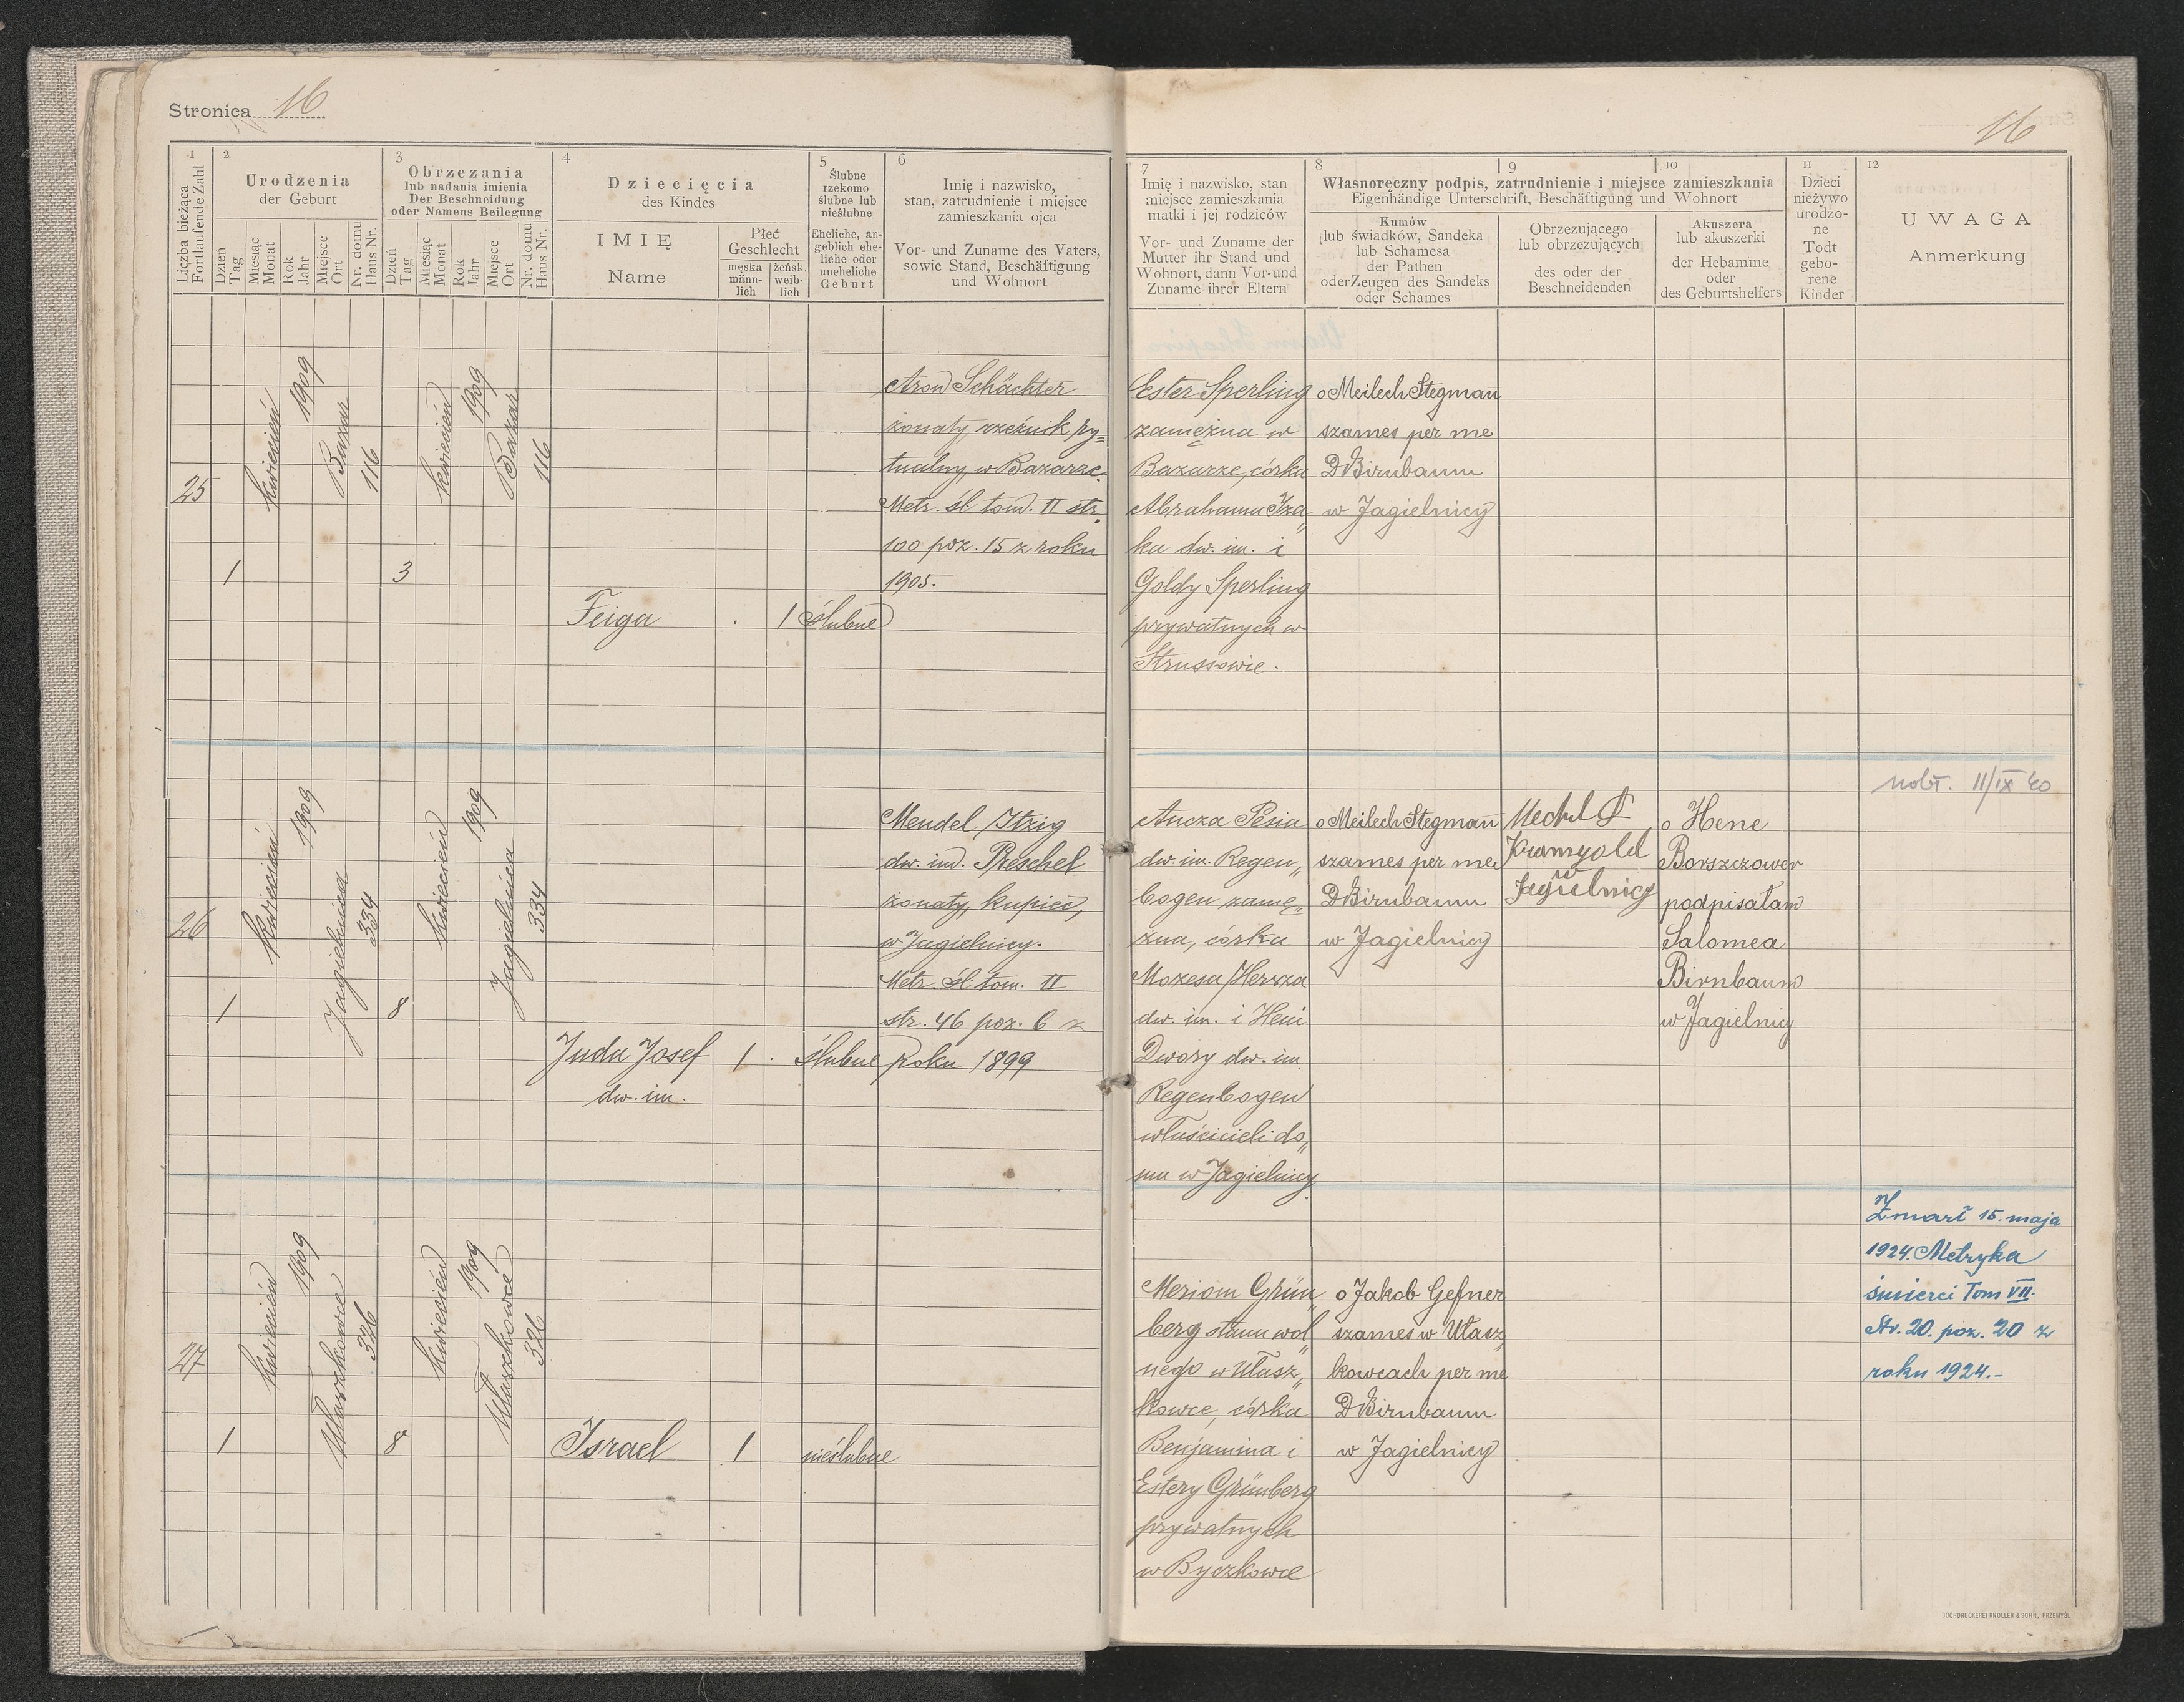 Stronica 16
16
1
Liczba bieżąca
Fortlaufende Zahl
2
Urodzenia
der Geburt
Dzień
Tag
Miesiąc
Monat
Rok
Jahr
Miejsce
Ort
Nr. domu
Haus Nr.
3
Obrzezania
lub nadania imienia
Der Beschneidung
oder Namens Beilegung
Dzień
Tag
Miesiąc
Monat
Rok
Jahr
Miejsce
Ort
Nr. domu
Haus Nr.
4
Dziecięcia
des Kindes
IMIĘ
Name
Płeć
Geschlecht
męska
männ-
lich
żeńsk.
weib-
lich
5
Ślubne
rzekomo
ślubne lub
nieślubne
Eheliche, an-
geblich ehe-
liche oder
uneheliche
Geburt
6
Imię i nazwisko,
stan, zatrudnienie i miejsce
zamieszkania ojca
Vor- und Zuname des Vaters,
sowie Stand, Beschäftigung
und Wohnort
7
Imię i nazwisko, stan
miejsce zamieszkania
matki i jej rodziców
Vor- und Zuname der
Mutter ihr Stand und
Wohnort, dann Vor-und
Zuname ihrer Eltern
8
9
10
Własnoręczny podpis, zatrudnienie i miejsce zamieszkania
Eigenhändige Unterschrift, Beschäftigung und Wohnort
Kumów
lub świadków, Sandeka
lub Schamesa
der Pathen
oder Zeugen des Sandeks
oder Schames
Obrzezującego
lub obrzezujących
des oder der
Beschneidenden
Akuszera
lub akuszerki
der Hebamme
oder
des Geburtshelfers
11
Dzieci
nieżywo
urodzo-
ne
Todt
gebo-
rene
Kinder
12
UWAGA
Anmerkung
25
1
kwiecień
1909
Bazar
116
3
kwiecień
1909
Bazar
116
Feiga
.
1
ślubne
Aron Schächter
żonaty, rzeźnik ry=
tualny, w Bazarze.
Metr. śl. tom. II str.
100 poz. 15 z roku
1905.
Ester Sperling
zamężna w
Bazarze, córka
Abrahama Iza„
ka dw. im. i
Goldy Sperling
prywatnych w
Strussowie.
o Meilech Stegman
szames per me
DBirnbaum
w Jagielnicy
26
1
kwiecień
1909
Jagielnica
334
8
kwiecień
1909
Jagielnica
334
Juda Josef
dw. im.
1
.
ślubne
Mendel Itzig
dw. im. Preschel
żonaty, kupiec,
w Jagielnicy.
Metr. śl. tom. II
str. 46 poz. 6 z
roku 1899
Ancza Pesia
dw. im. Regen„
bogen zamę„
żna, córka
Mozesa Hersza
dw. im. i Heni
Dwory dw. im.
Regenbogen
właścicieli do„
mu w Jagielnicy.
o Meilech Stegman
szames per me
DBirnbaum
w Jagielnicy
w
Jagielnicy
o Hene
Borszczower
podpisałam
Salomea
Birnbaum
w Jagielnicy
11/IX 40
27
1
kwiecień
1909
Ułaszkowce
326
8
kwiecień
1909
Ułaszkowce
326
Israel
1
nieślubne
Meriom Grün„
berg stanu wol„
nego w Ułasz„
kowce, córka
Benjamina i
Estery Grünberg
prywatnych
w Byczkowce
o Jakob Gefner
szames w Ułasz„
kowcach per me
DBirnbaum
w Jagielnicy
Zmarł 15. maja
1924. Metryka
śmierci Tom VII.
Str. 20. poz. 20 z
roku 1924.-
BUCHDRUCKEREI KNOLLER & SOHN, PRZEMYŚL